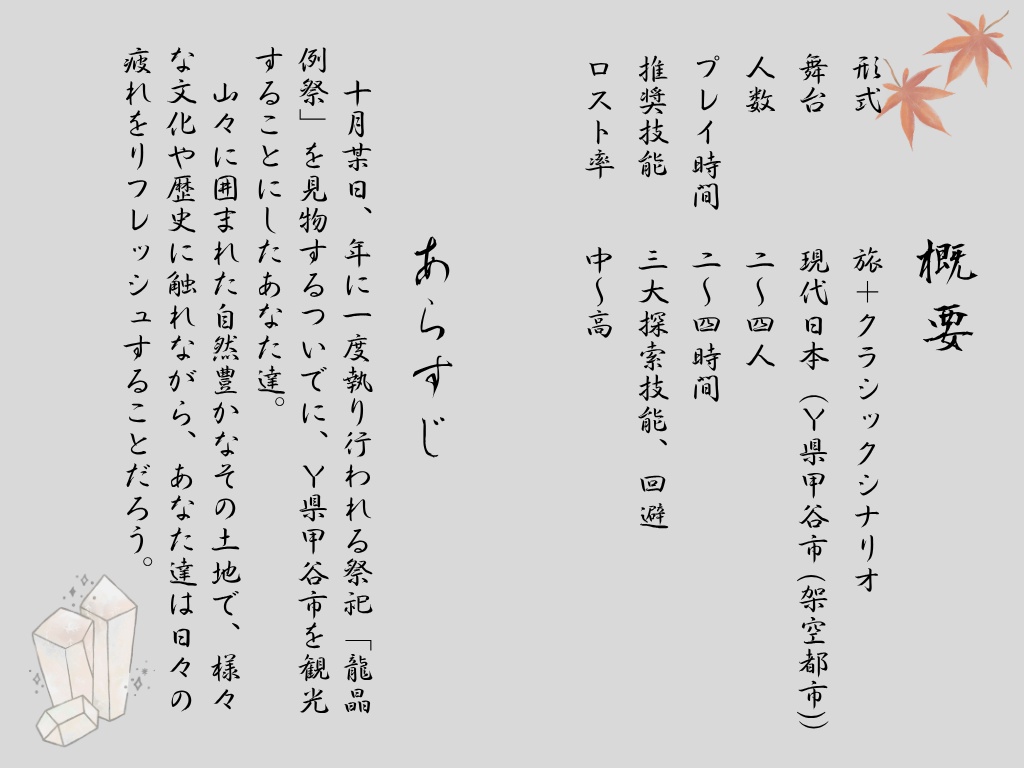 概要
形式　旅＋クラシックシナリオ
舞台　現代日本（Y県甲谷市（架空都市））
人数　二～四人
プレイ時間　二～四時間
推奨技能　三大探索技能、回避
ロスト率　中～高
あらすじ
十月某日、年に一度執り行われる祭祀「龍晶
例祭」を見物するついでに、Y県甲谷市を観光
することにしたあなた達。
山々に囲まれた自然豊かなその土地で、様々
な文化や歴史に触れながら、あなた達は日々の
疲れをリフレッシュすることだろう。